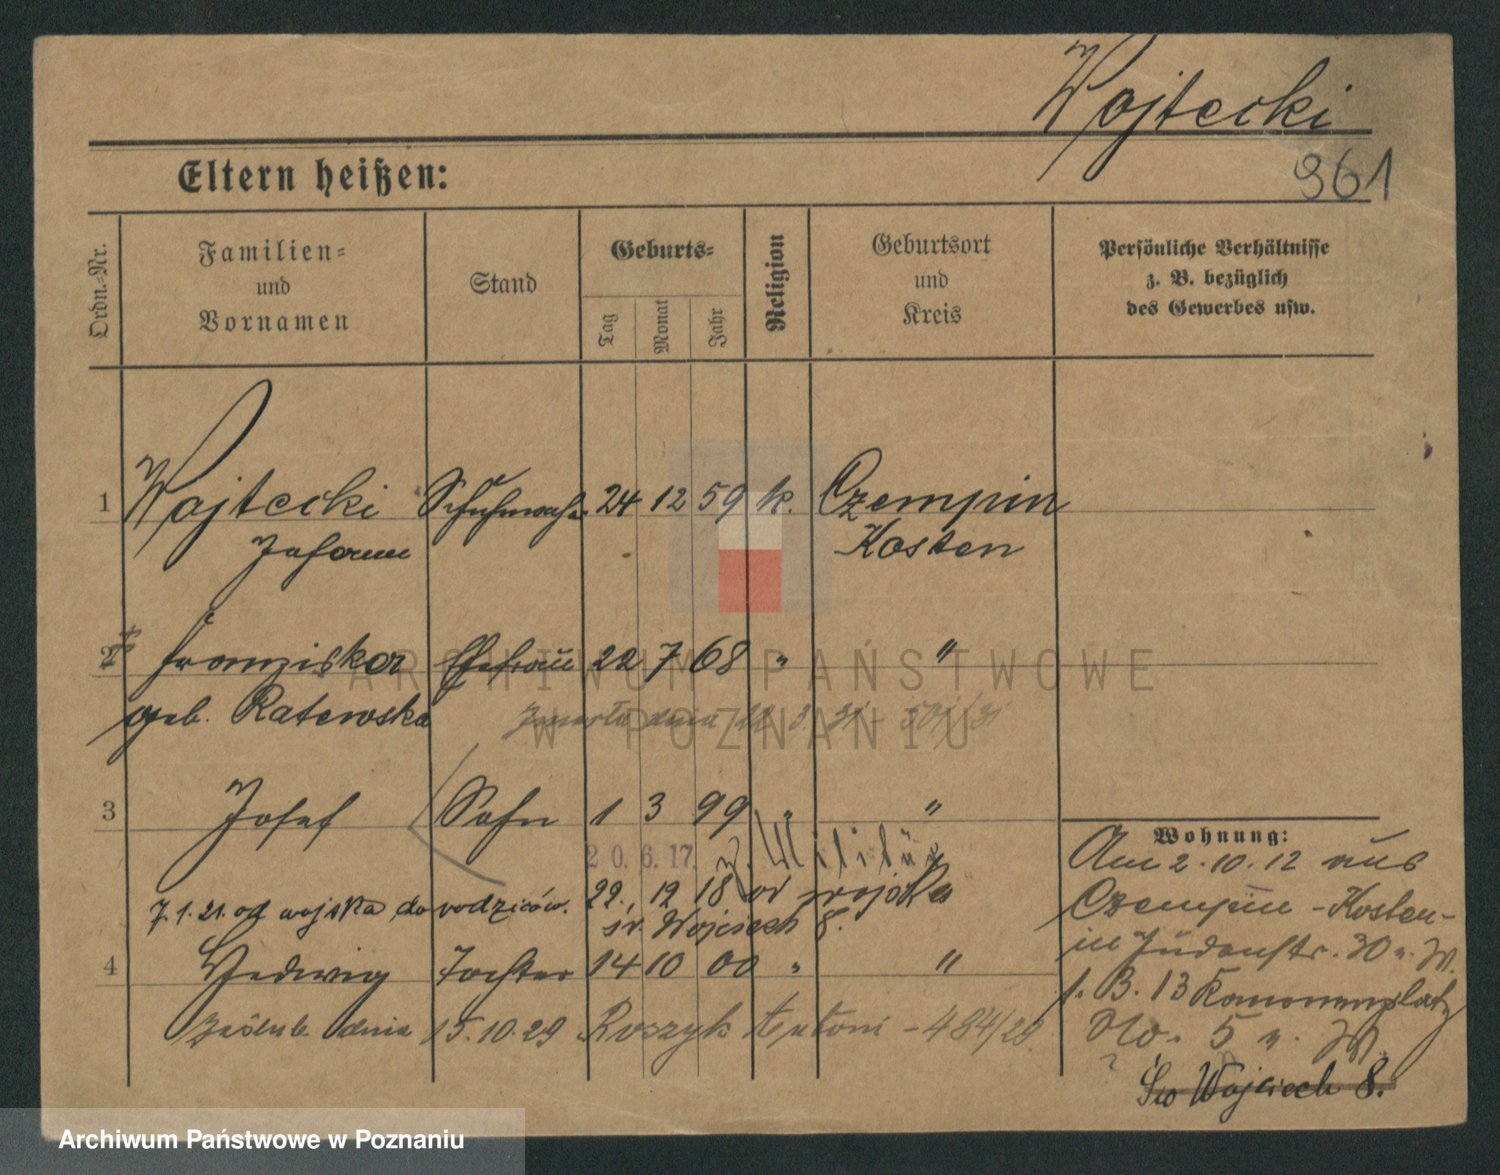 Wojtecki
961
Eltern heißen:
Ordn.-Nr.
Familien-
und
Vornamen
Stand
Geburts-
Tag
Monat
Jahr
Religion
Geburtsort
und
Kreis
Persönliche Verhältnisse
z. B. bezüglich
des Gewerbes usw.
1 Wojtecki Schuhmacher 24 12 59 k. Czempin
Johann Kosten
2 Franziska Ehefrau 22 7 68 " "
geb. Ratewska zmarła dnia
3 Josef Sohn 1 3 99 " "
20.6.17. z. Militär
22. 12 18 od wojska
7.1.21. od wojska do rodziców. św. Wojciech 8.
4 Hedwig Tochter 14 10 00 " "
Zaślub. dnia 15.10.29 Roszyk Antoni - 484/29
Wohnung:
Am 2.10.12 aus
Czempin - Kosten -
in Judenstr. 30 n. W.
1. B. 13 Kanonenplatz
No. 5 n. W.
Św Wojciech 8.
ARCHIWUM PAŃSTWOWE
W POZNANIU
Archiwum Państwowe w Poznaniu